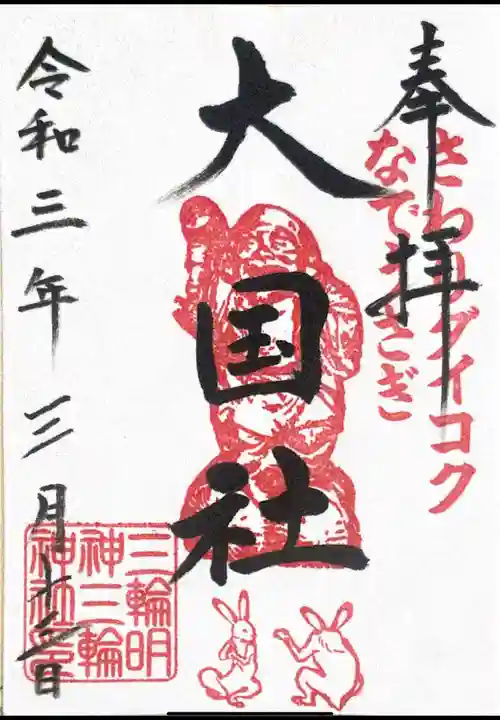 奉拝
さわりダイコク
なでうさぎ
大国社
令和三年三月
三輪明
神三輪
神社印